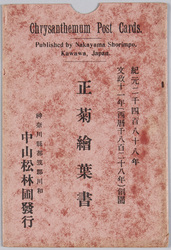 Chrysanthemum Post Cards.
Published by Nakayama Shorinpo.
Kawawa, Japan.
紀元二千四百八十八年
文政十一年(西暦千八百二十八年)創園
正菊繪葉書
神奈川縣都筑郡川和
中山松林圃發行